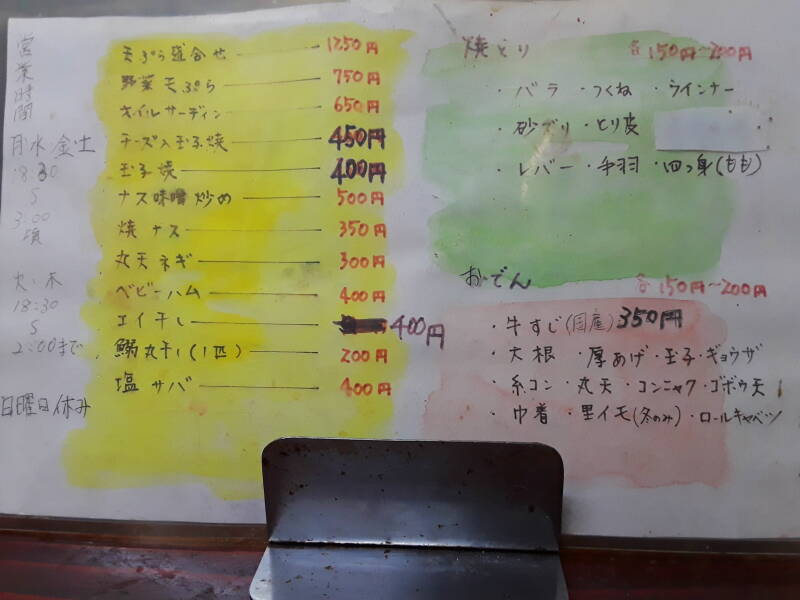 営業時間
月・水・金・土
18:30
〜
3:00
頃
火・木
18:30
〜
2:00まで
日曜日休み
天ぷら盛合せ 1250円
野菜天ぷら 750円
オイルサーディン 650円
チーズ入玉子焼 450円
玉子焼 400円
ナス味噌炒め 500円
焼ナス 350円
丸天ネギ 300円
ベビーハム 400円
エイ干し 400円
鰯丸干し(1匹) 200円
塩サバ 400円
焼とり 各150円〜200円
・バラ ・つくね ・ウインナー
・砂ずり ・とり皮
・レバー ・手羽 ・四つ身(もも)
おでん 各150円〜200円
・牛すじ(国産) 350円
・大根 ・厚あげ ・玉子 ・ギョウザ
・糸コン ・丸天 ・コンニャク ・ゴボウ天
・巾着 ・里イモ(冬のみ) ・ロールキャベツ